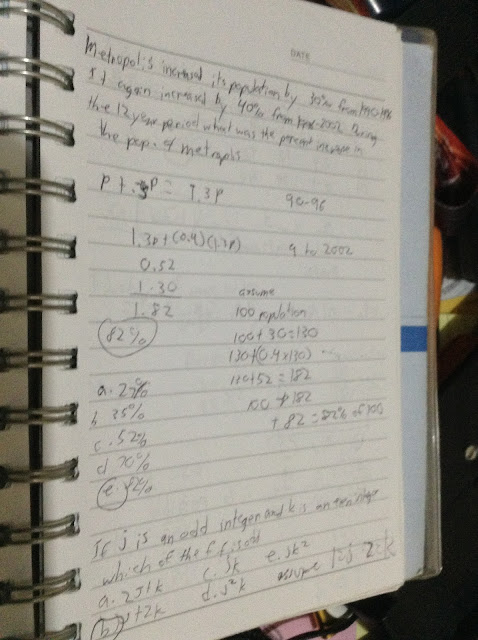 DATE
Metropolis increased its population by 30% from 1990-1996
It again increased by 40% from 1996-2002. During
the 12 year period what was the percent increase in
the pop. of metropolis
P + .3P = 1.3P 90-96
1.3p + (0.4)(1.3p) 9 to 2002
0.52
1.30 assume
1.82 100 population
82% 100 + 30 = 130
130 + (0.4 x 130)
130 + 52 = 182
a. 25% 100 → 182
b. 35% + 82 = 82% of 100
c. 52%
d. 70%
e. 82%
If j is an odd integer and k is an even integer
which of the ff is odd
a. 2j + k c. jk e. jk²
b. j + 2k d. j²k assume 1=j 2=k